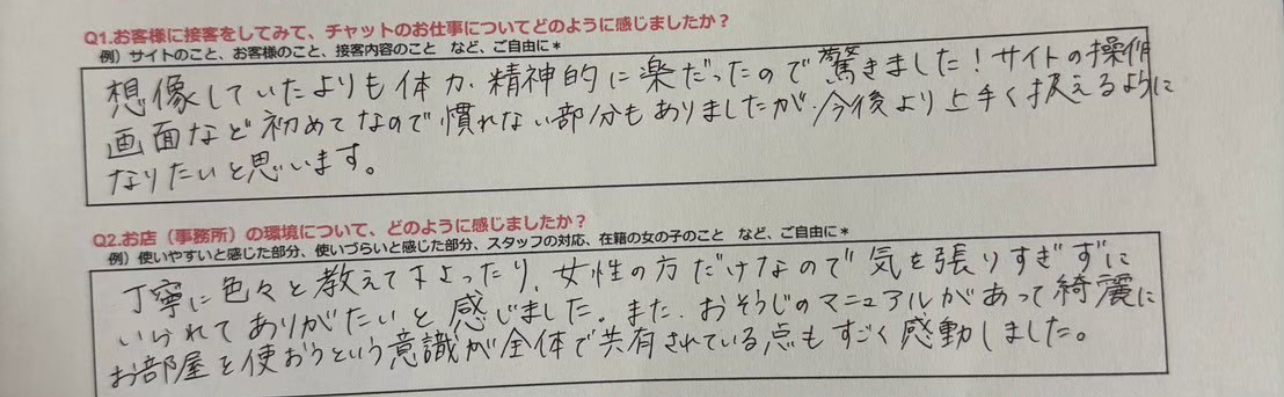 Q1.お客様に接客をしてみて、チャットのお仕事についてどのように感じましたか？
例）サイトのこと、お客様のこと、接客内容のこと　など、ご自由に＊
想像していたよりも体力、精神的に楽だったので驚きました！サイトの操作
画面など初めてなので慣れない部分もありましたが、今後より上手く扱えるように
なりたいと思います。
Q2.お店（事務所）の環境について、どのように感じましたか？
例）使いやすいと感じた部分、使いづらいと感じた部分、スタッフの対応、在籍の女の子のこと　など、ご自由に＊
丁寧に色々と教えて下さったり、女性の方だけなので気を張りすぎずに
いられてありがたいと感じました。また、おそうじのマニュアルがあって綺麗に
お部屋を使おうという意識が全体で共有されている点もすごく感動しました。